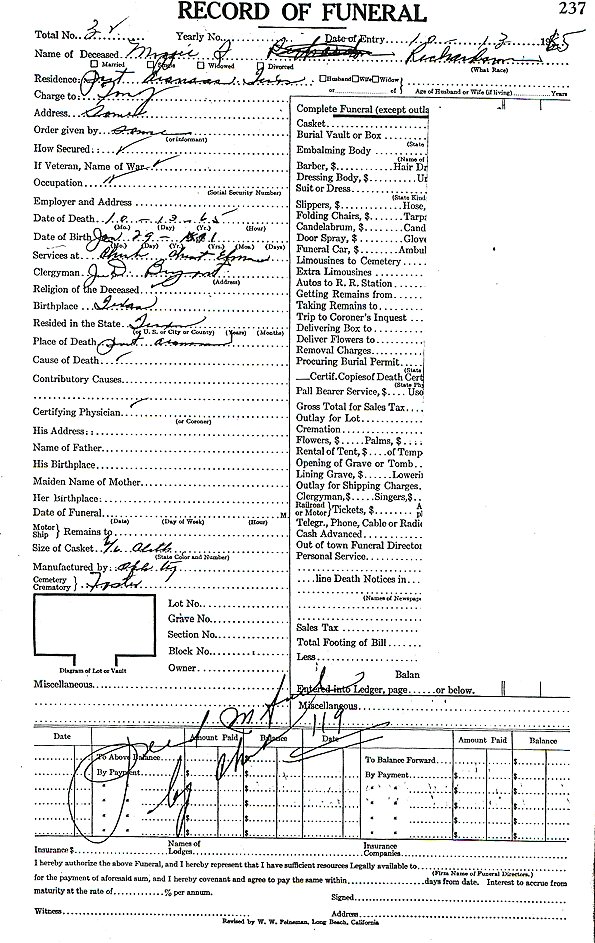 RECORD OF FUNERAL
237
Total No. 34 Yearly No. Date of Entry 10 - 13 - 1965
Name of Deceased J Richardson
(What Race)
Married Single Widowed Divorced
Residence: Port Aransas, Texas Husband Wife Widow
or of Age of Husband or Wife (if living) Years
Charge to:
Address
Order given by Same
(or informant)
How Secured:
If Veteran, Name of War
Occupation
(Social Security Number)
Employer and Address
Date of Death 10 - 13 - 65
(Mo.) (Day) (Yr.) (Hour)
Date of Birth Jan 29 -
(Mo.) (Day) (Yr.) Yrs. (Mos.) (Days)
Services at Church
Clergyman J. D.
(Address)
Religion of the Deceased
Birthplace Texas
Resided in the State Texas
(or U. S. or City or County) (Years) (Months)
Place of Death Port Aransas
Cause of Death
Contributory Causes
Certifying Physician
(or Coroner)
His Address:
Name of Father
His Birthplace
Maiden Name of Mother
Her Birthplace:
Date of Funeral M.
(Date) (Day of Week) (Hour)
Motor
Ship } Remains to
Size of Casket 6/6 Cloth
(State Color and Number)
Manufactured by:
Cemetery
Crematory }
Lot No.
Grave No.
Section No.
Block No.
Owner
Diagram of Lot or Vault
Miscellaneous
Complete Funeral (except outla
Casket
Burial Vault or Box
(State
Embalming Body
(Name of
Barber, $ Hair Dr
Dressing Body, $ Ur
Suit or Dress
(State Kind
Slippers, $ Hose,
Folding Chairs, $ Tarpa
Candelabrum, $ Cand
Door Spray, $ Glove
Funeral Car, $ Ambul
Limousines to Cemetery
Extra Limousines
Autos to R. R. Station
Getting Remains from
Taking Remains to
Trip to Coroner's Inquest
Delivering Box to
Deliver Flowers to
Removal Charges
Procuring Burial Permit
(State
Certif. Copies of Death Cert
(State Ph
Pall Bearer Service, $ Use
Gross Total for Sales Tax
Outlay for Lot
Cremation
Flowers, $ Palms, $
Rental of Tent, $ of Temp
Opening of Grave or Tomb
Lining Grave, $ Loweri
Outlay for Shipping Charges
Clergyman, $ Singers, $
Railroad
or Motor } Tickets, $
Telegr., Phone, Cable or Radio
Cash Advanced
Out of town Funeral Director
Personal Service
line Death Notices in
(Names of Newspape
Sales Tax
Total Footing of Bill
Less
Balan
Entered into Ledger, page or below.
Miscellaneous
119
Date Amount Paid Balance Date Amount Paid Balance
To Above Balance $ To Balance Forward $
By Payment $ By Payment $
" " $ " " $
" " $ " " $
" " $ " " $
" " $ " " $
Insurance $ Names of Lodges Insurance Companies
I hereby authorize the above Funeral, and I hereby represent that I have sufficient resources Legally available to
(Firm Name of Funeral Directors.)
for the payment of aforesaid sum, and I hereby covenant and agree to pay the same within days from date. Interest to accrue from
maturity at the rate of % per annum.
Signed
Witness Address
Revised by W. W. Feineman, Long Beach, California